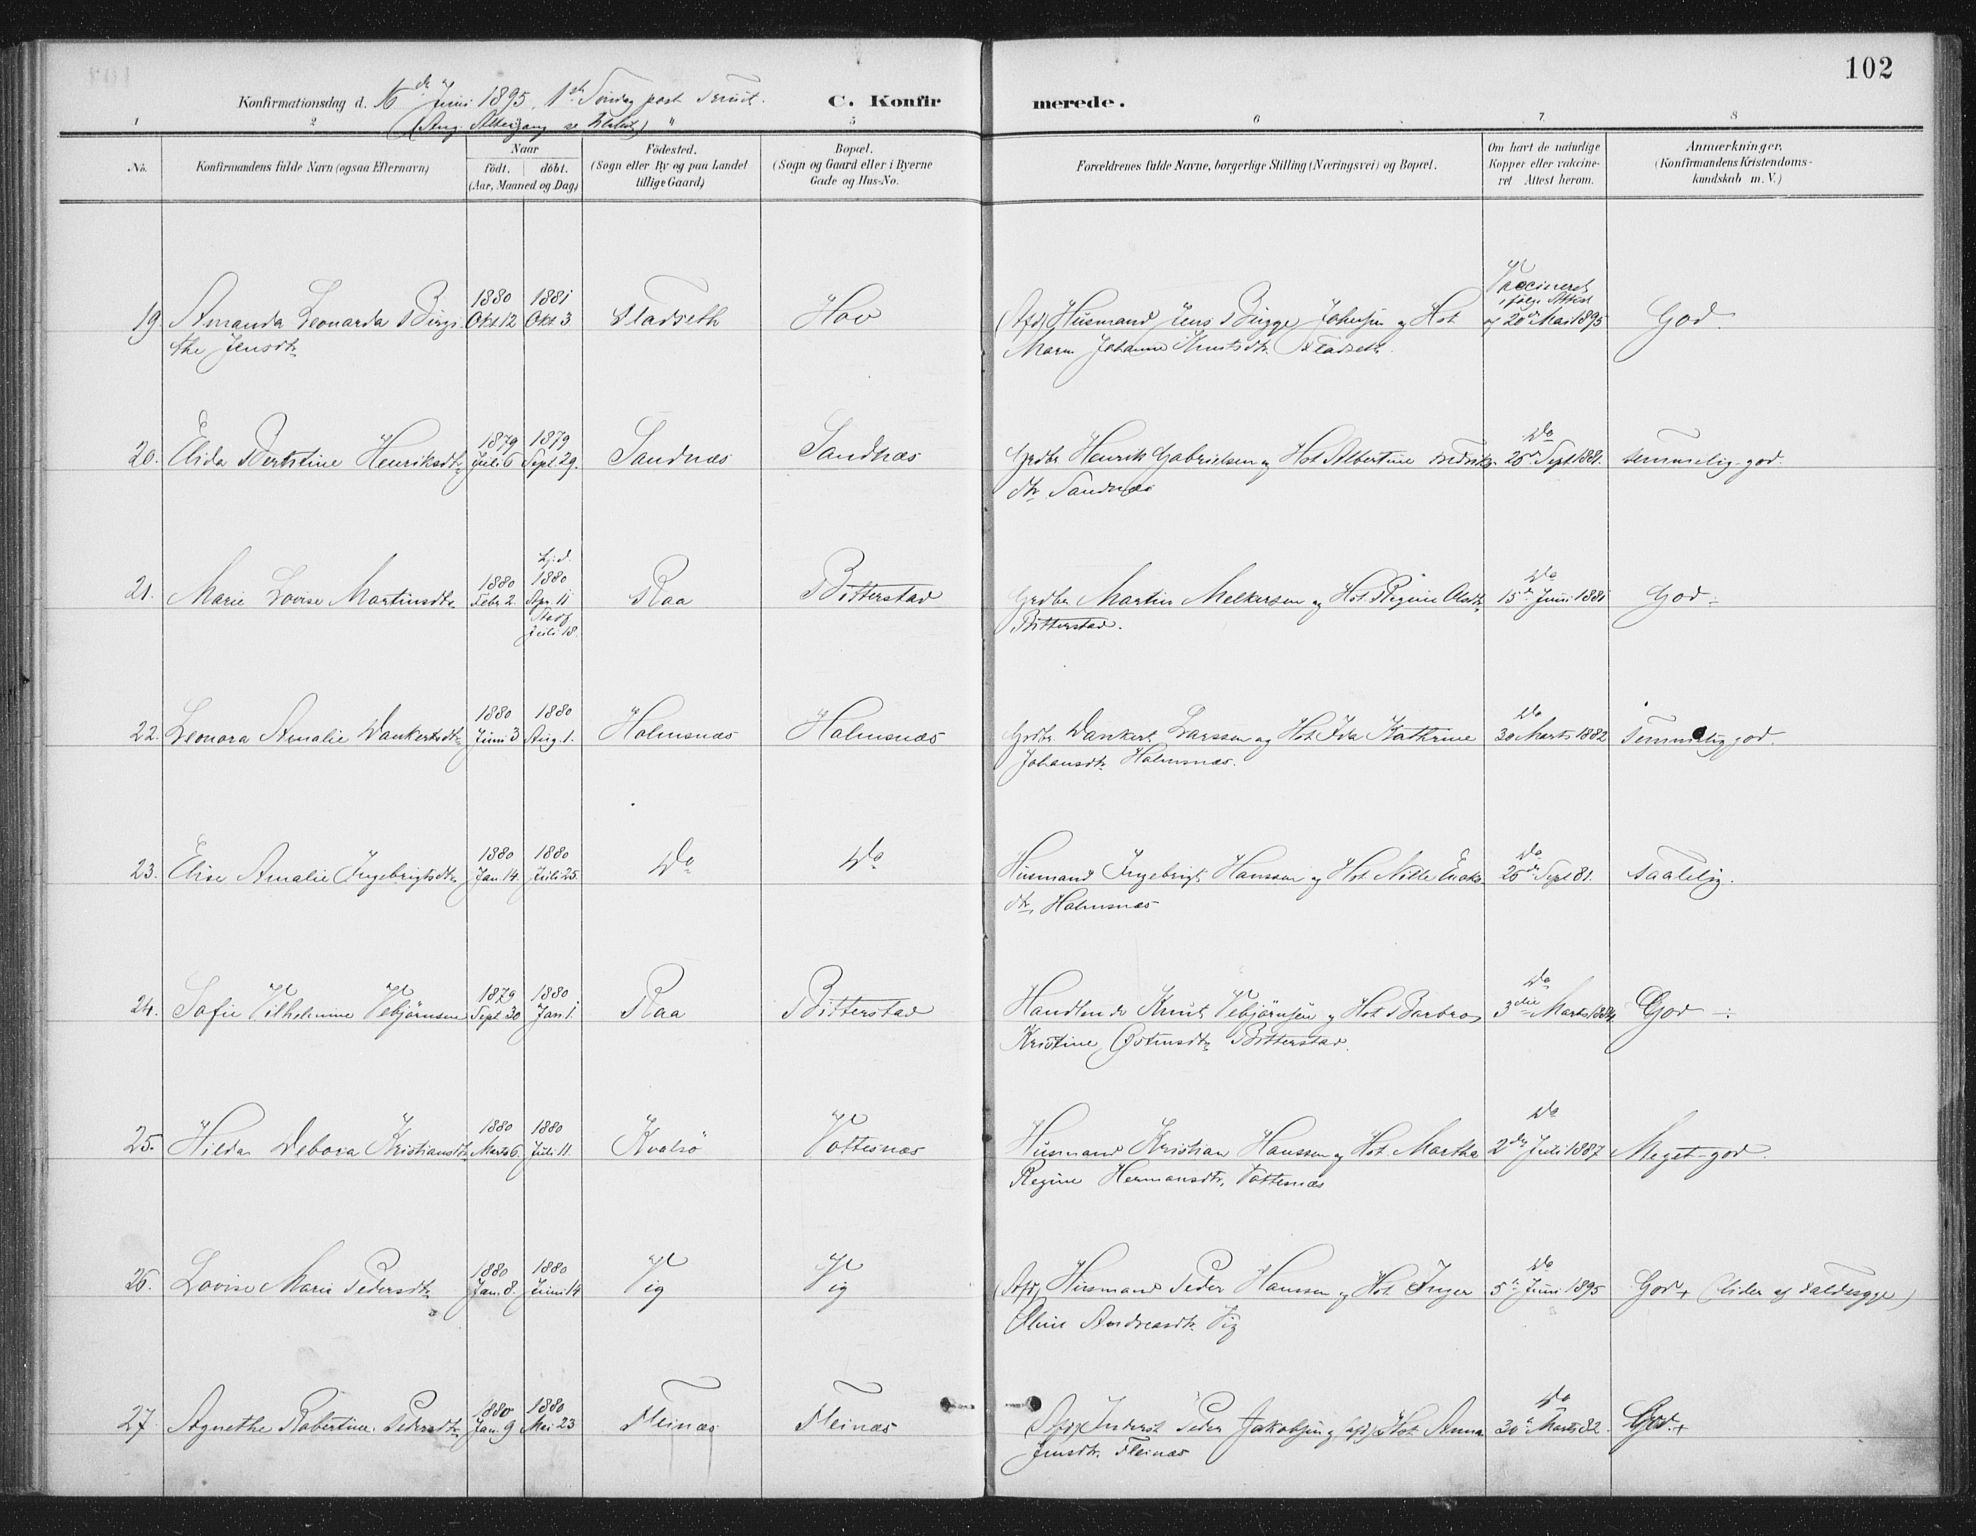 102
Konfirmationsdag d. 16de Juni 1895. 1ste Søndag post Trinit. C. Konfirmerede.
(Ang. Altergang se
1 2 3 4 5 6 7 8
No. Konfirmandens fulde Navn (ogsaa Efternavn) Naar født. døbt. (Aar, Maaned og Dag) Fødested. (Sogn eller By og paa Landet tillige Gaard) Bopæl. (Sogn og Gaard eller i Byerne Gade og Hus-No. Forældrenes fulde Navne, borgerlige Stilling (Næringsvei) og Bopæl. Om havt de naturlige Kopper eller vakcineret Attest herom. Anmærkninger. (Konfirmandens Kristendomskundskab m. V.)
19. Amanda Leonarda Birgi- 1880 Okt 12 1881 Okt 3 Fladseth Hov (Afd) Husmand Jens Bugge Johnsen og Hst Vaccineret ifølg. Attest af 20de Mai 1895 God.
the Jensdtr Maren Johanna Knutsdtr. Fladseth.
20. Elida Bertine Henriksdtr 1879 Juli 6 1879 Sept. 29. Sandnæs Sandnæs Grdbr Henrik Gabrielsen og Hst Albertine Fredriks- Do 26de Sept 1881. temmelig god.
dtr Sandnæs
21. Marie Lovise Martinsdtr 1880 Febr 2. hj. d. 1880 Apr. 11 Stadf Juli 18. Raa Bitterstad Grdbr Martin Melkersen og Hst Regine Olsdtr Do 15de Juni 1881 God
Bitterstad.
22. Leonora Amalie Dankertsdtr 1880 Juni 3 1880 Aug. 1. Holmsnæs Holmsnæs Grdbr Dankert Larssen og Hst Ida Kathrine Do 30 Marts 1882 Temmelig god.
Johansdtr Holmsnæs.
23. Elise Amalie Ingebrigtsdtr 1880 Jan. 14. 1880 Juli 25. Do Do Husmand Ingebrigt Hanssen og Hst Do 26de Sept 81. taalelig.
dtr, Holmsnæs
24. Sofie Vilhelmine Vebjørnsen 1879 Sept 30 1880 Jan 1. Raa Bitterstad Handlende Knut Vebjørnsen og Hst Barbro Do 3die Marts God
Kristine Østensdtr Bitterstad.
25. Hilda Debora Kristiansdtr 1880 Marts 6. 1880 Juli 11. Kvalsø Vottesnæs Husmand Kristian Hanssen og Hst Martha Do 2den Juli 1887 Meget god.
Regine Hermansdtr, Vottesnæs
26. Lovise Marie Pedersdtr 1880 Jan. 8. 1880 Juni 14 Vig Vig (Afd) Husmand Peder Hanssen og Hst Inger Do 5te Juni 1895 God + (lider af faldesyge)
Oline Andreasdtr Vig
27. Agnethe Robertine Pedersdtr 1880 Jan. 9 1880 Mai 23 Fleinæs Fleinæs (Afd) Inderst Peder Jakobsen og (afd) Hst Anna Do 30te Marts 82. God. +
Jensdtr. Fleinæs